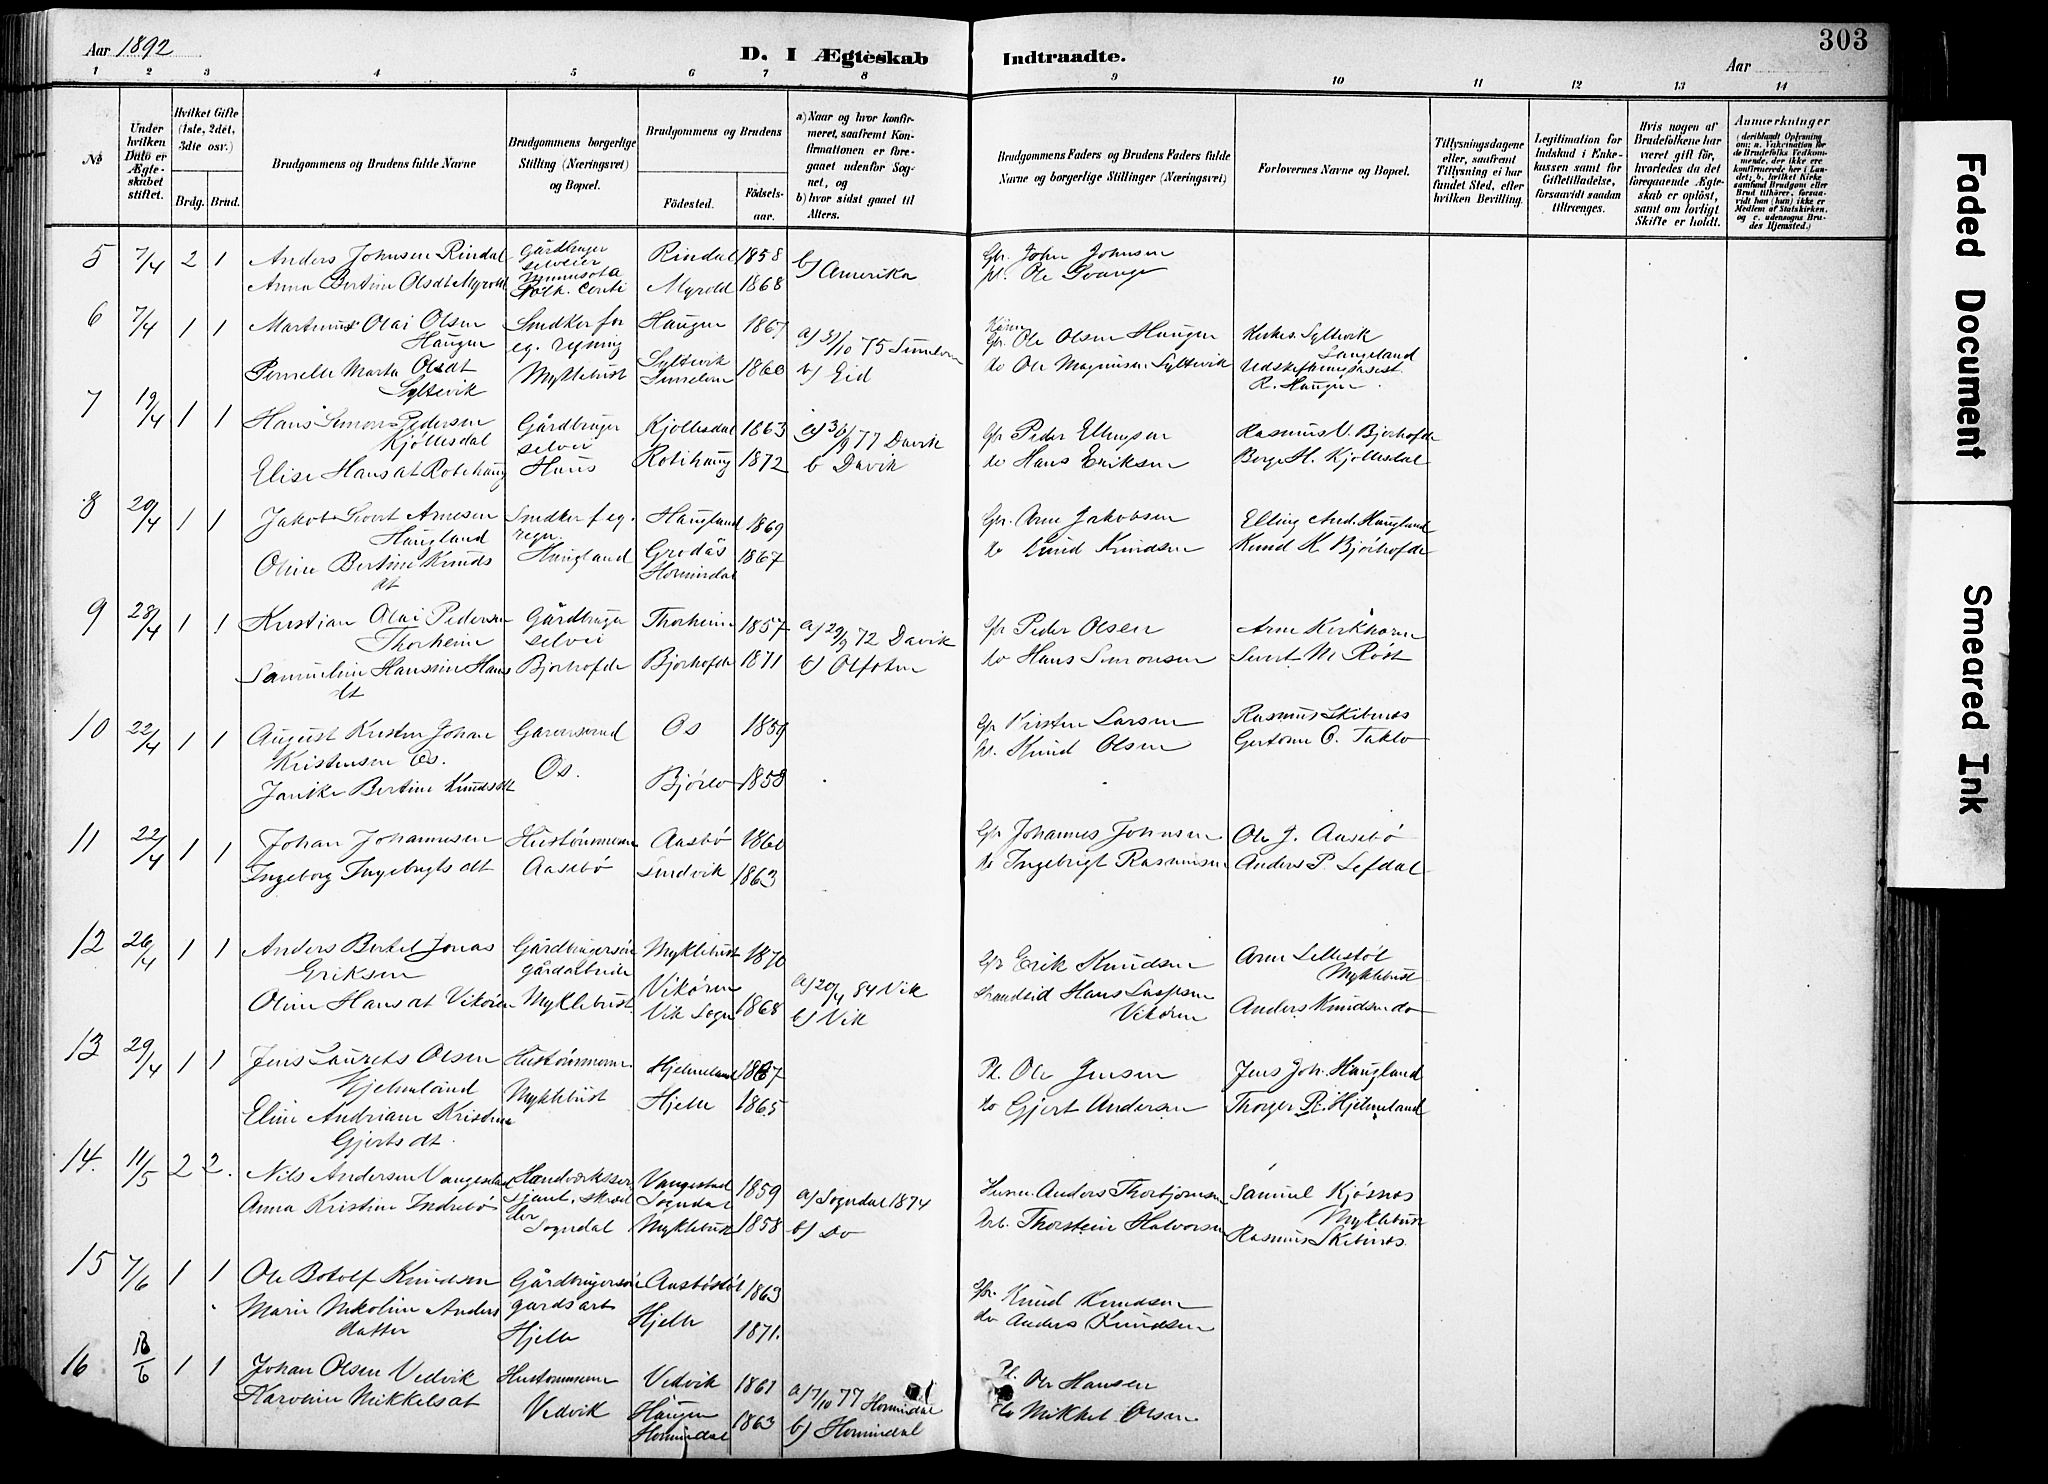 Aar 1892
D. I Ægteskab
Indtraadte.
Aar
303
1 2 3 4 5 6 7 8 9 10 11 12 13 14
№
Under hvilken Dato er Ægteskabet stiftet.
Hvilket Gifte (1ste, 2det, 3die osv.)
Brdg. Brud.
Brudgommens og Brudens fulde Navne
Brudgommens borgerlige Stilling (Næringsvei) og Bopæl.
Brudgommens og Brudens
Födested.
Födselsaar.
a) Naar og hvor konfirmeret, saafremt Konfirmationen er foregaaet udenfor Sognet, og
b) hvor sidst gaaet til Alters.
Brudgommens Faders og Brudens Faders fulde Navne og borgerlige Stillinger (Næringsvei)
Forlovernes Navne og Bopæl.
Tillysningsdagene eller, saafremt Tillysning ei har fundet Sted, efter hvilken Bevilling.
Legitimation for Indskud i Enkekassen samt for Giftetilladelse, forsaavidt saadan tiltrænges.
Hvis nogen af Brudefolkene har været gift för, hvorledes da det foregaaende Ægteskab er oplöst, samt om lovligt Skifte er holdt.
Anmærkninger
(deriblandt Oplysning om: a. Vakcination for de Brudefolks Vedkommende, der ikke ere konfirmerede her i Landet; b. hvilket Kirkesamfund Brudgom eller Brud tilhörer, forsaavidt han (hun) ikke er Medlem af Statskirken, og c. udensogns Brudes Hjemsted.)
5 7/4 2 1 Anders Johnsen Rindal Gårdbruger Rindal 1858 Gbr. John Johnsen
selveier Minnesota b) Amerika
Anna Bertine Olsdt Myrold Myrold 1868 Ole
6 7/4 1 1 Martinus Olai Olsen Snedker for Haugen 1867 Gbr. Ole Olsen Haugen Syltevik
Haugen eg. regning a) 31/10 75 Langeland
Pernelle Marta Olsdt Myklebust Syltevik 1860 b) Eid do Ole Magnusen Syltevik
Syltevik R. Haugen
7 19/4 1 1 Hans Simon Pedersen Gårdbruger Kjöllesdal 1863 77 Davik Gbr Peder Ellingsen Rasmus V. Bjorhofde
Kjöllesdal selvei
Elise Hansdt Rotihaug Haus Rotihaug 1872 b Davik do Hans Eriksen H. Kjöllesdal
8 20/4 1 1 Jakob Sivert Arnesen Snedker f eg. Haugland 1869 Gbr. Arne Jakobsen Elling And. Haugland
Haugland regn.
Oline Bertine Knuds Haugland Grodås 1867 do Knudsen Knud K Bjorhofde
dt Hornindal
9 28/4 1 1 Kristian Olai Pedersen Gårdbruger Thorheim 1857 a) 29/9 72 Davik Gbr Peder Olsen Arne Kirkhorn
Thorheim selvei
Samueline Hansine Hans Bjorhofde Bjorhofde 1871 b) Olfoten do Hans Simonsen Sivert M Röst
dt
10 22/4 1 1 August Kristen Johan Os 1859 Gbr Kirsten Larsen Rasmus Skibenes
Kristensen Os. Os. Knud Olsen Taklo
Janike Bertine Knudsdt Bjørlo 1858
11 22/4 1 1 Johan Johannesen Hustömmerm Aasebö 1860 Gbr Johannes Johnsen Ole J. Aasebö
Ingeborg Ingebrigtsdt Aasebö 1863 do Ingebrigt Rasmussen Anders P. Lefdal
12 26/4 1 1 Anders Bertel Jonas Gårdbrugersön Myklebust 1870 Gbr Erik Knudsen Arne Lillestöl
Eriksen gårdarbeide Myklebust
Oline Hansdt Vikören Myklebust Vikören 1868 a) 20/4 84 Vik Strandsid Hans Anders Knudsen do
Vik Sogn b) Vik Vikören
13 29/4 1 1 Jens Laurits Olsen Hustömmerm. Hjelmeland 1867 Pl. Ole Jensen Jens Joh. Haugland
Hjelmeland Myklebust
Eline Andriane Kristine Hjelle 1865 do Gjert Andersen Thorger R. Hjelmeland
Gjertsdt.
14. 11/5 2 2. Nils Andersen Vangestad Vangestad 1859 Husm. Anders Thorbjörnsen Samuel Kjösnes
Sogndal a) Sogndal 1874 Myklebust
Anna Kristine Indrebö Sogndal Myklebust 1858 b) Do Arb. Thorstein Halvorsen Rasmus Skibenes.
15 7/6 1 1 Ole Botolf Knudsen Gårdbrugersön 1863 Gbr. Knud Knudsen
Marie Nikoline Anders gårdsarb Hjelle do Anders Knudsen
datter Hjelle 1871.
16 1 1 Johan Olsen Vedvik Hustömmerm Vedvik 1861 Pl. Ole Hansen
Karoline Mikkelsdt Vedvik Haugen 1863 a) 7/10 77 Hornindal do Mikkel Olsen
Hornindal b) Hornindal
Faded Document
Smeared Ink